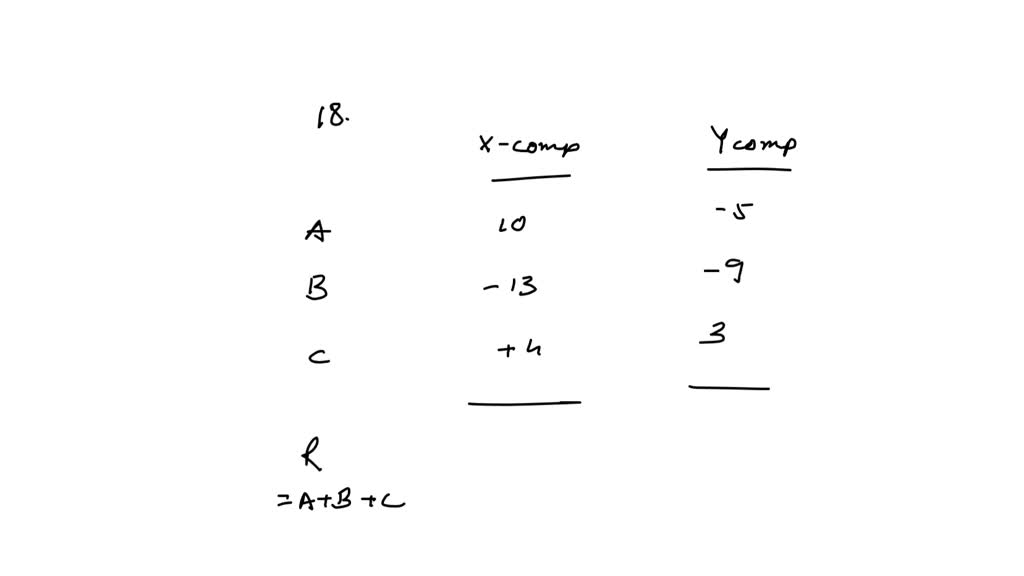 18.
X-comp Ycomp
A 10 -5
B -13 -9
C +4 3
R
=A+B+C